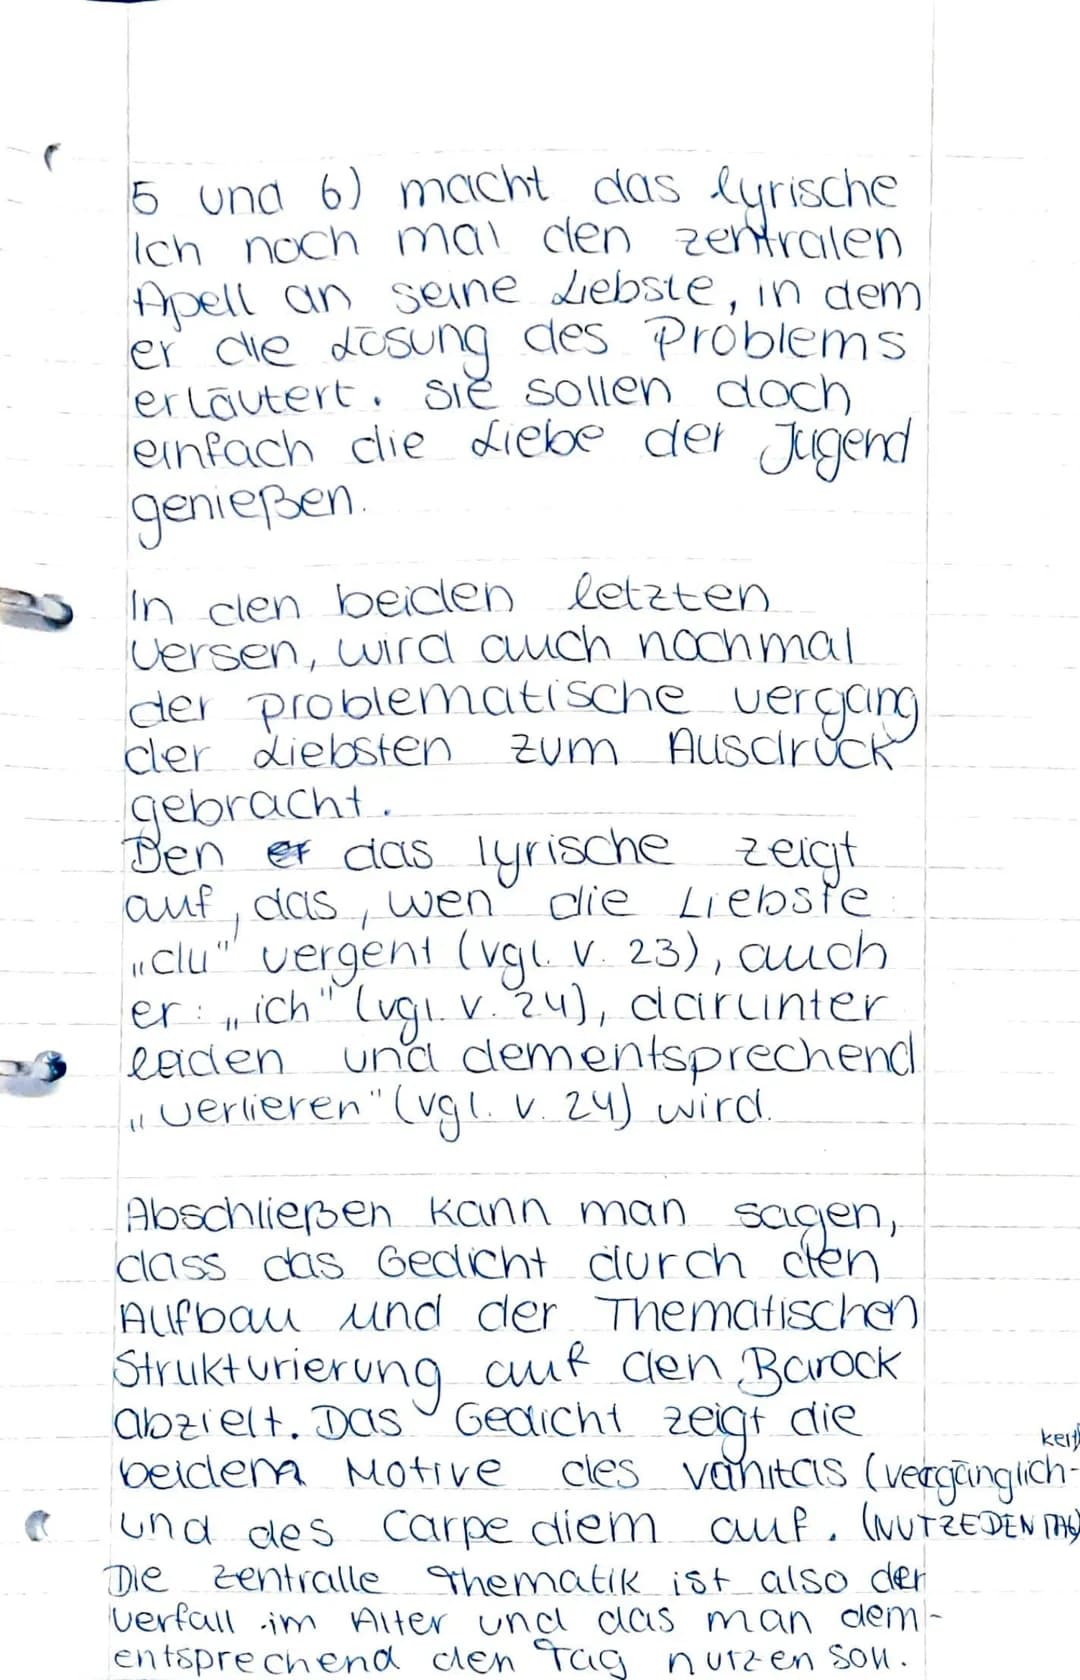 5 und 6) macht das lyrische
Ich noch mal den zentralen
Apell an seine Liebste, in dem
er die Lösung des Problems
erläutert. Sie sollen doch
einfach die Liebe der Jugend
genießen.
In den beiden letzten
Versen, wird auch nochmal
der problematische vergang
der Liebsten zum Ausdruck
gebracht.
Den das lyrische zeigt
auf, das, wen die Liebste
„du" vergent (vgl. V. 23), auch
er: „ich" (vgl. V. 24), darunter
leiden und dementsprechend
„verlieren" (vgl. V. 24) wird.
Abschließen kann man sagen,
dass das Gedicht durch den
Aufbau und der Thematischen
Strukturierung auf den Barock
abzielt. Das Gedicht zeigt die
beidem Motive des vanitas (vergänglich-
keit)
und des Carpe diem auf. (NUTZE DEN TAG)
Die zentralle Thematik ist also der
Verfall im Alter und das man dem-
entsprechend den Tag nutzen soll.